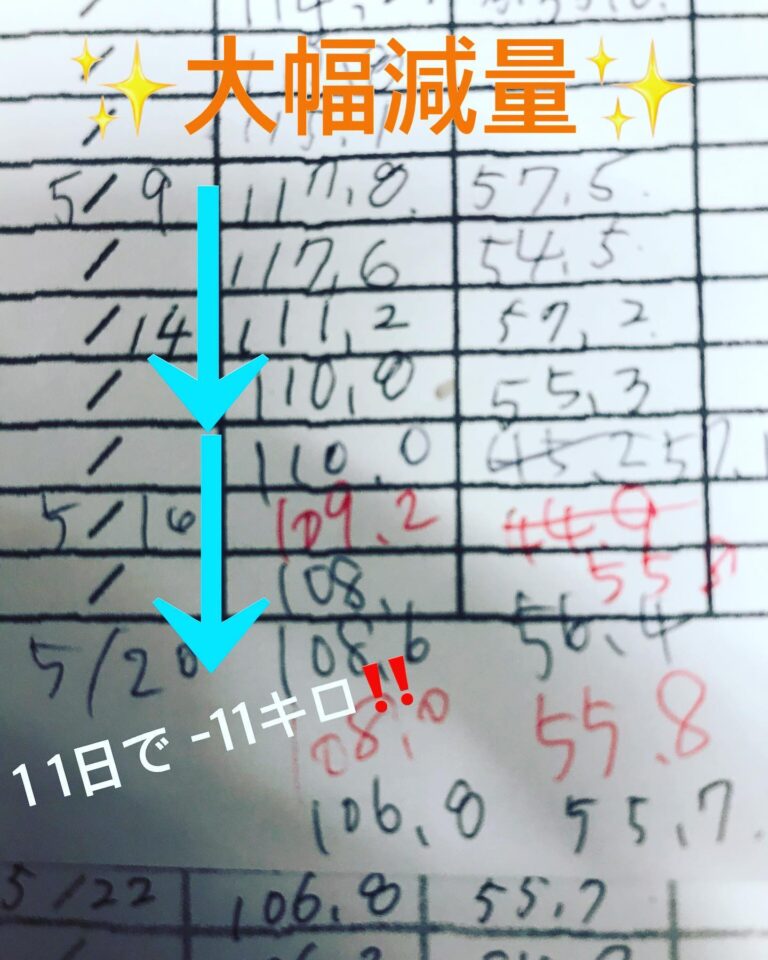 ✨大幅減量✨
5/9 117.8 57.5
/ 117.6 54.5
/14 111.2 57.2
/ 110.8 55.3
/ 110.0 45.2 57.
5/16 109.2 44.9
55
/ 108.
5/20 108.6 56.4
11日で -11キロ‼️
108.0 55.8
106.8 55.7
5/22 106.8 55.7